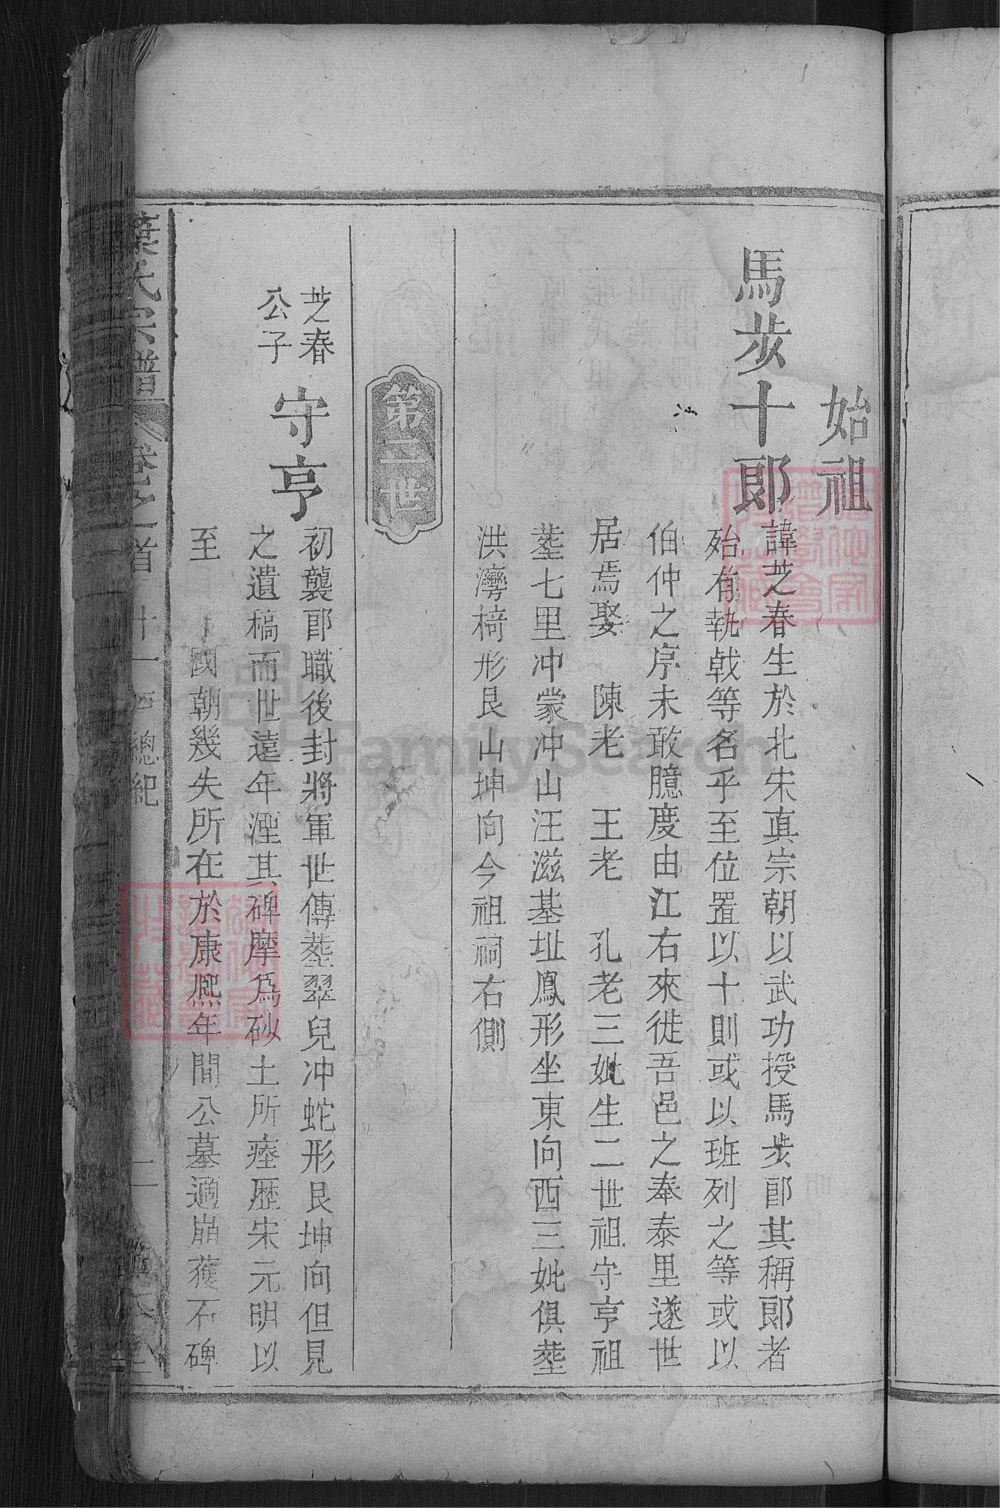 始祖
馬步十郞
諱芝春生於北宋真宗朝以武功授馬步郎其稱郞者
殆有執戟等名乎至位置以十則或以班列之等或以
伯仲之序未敢臆度由江右來徙吾邑之奉泰里遂世
居焉娶 陳老 王老 孔老三妣生二世祖守亨祖
塟七里冲蒙冲山汪滋基址鳳形坐東向西三妣俱塟
洪灣椅形艮山坤向今祖祠右側
第二世
芝春
公子
守亨
初襲郎職後封將軍世傳塟翠兒冲蛇形艮坤向但見
之遺稿而世遠年湮其碑摩爲砂土所瘞歷宋元明以
至 國朝幾失所在於康熈年間公墓適崩獲石碑
葉氏宗譜 卷之首 總紀 二
FamilySearch